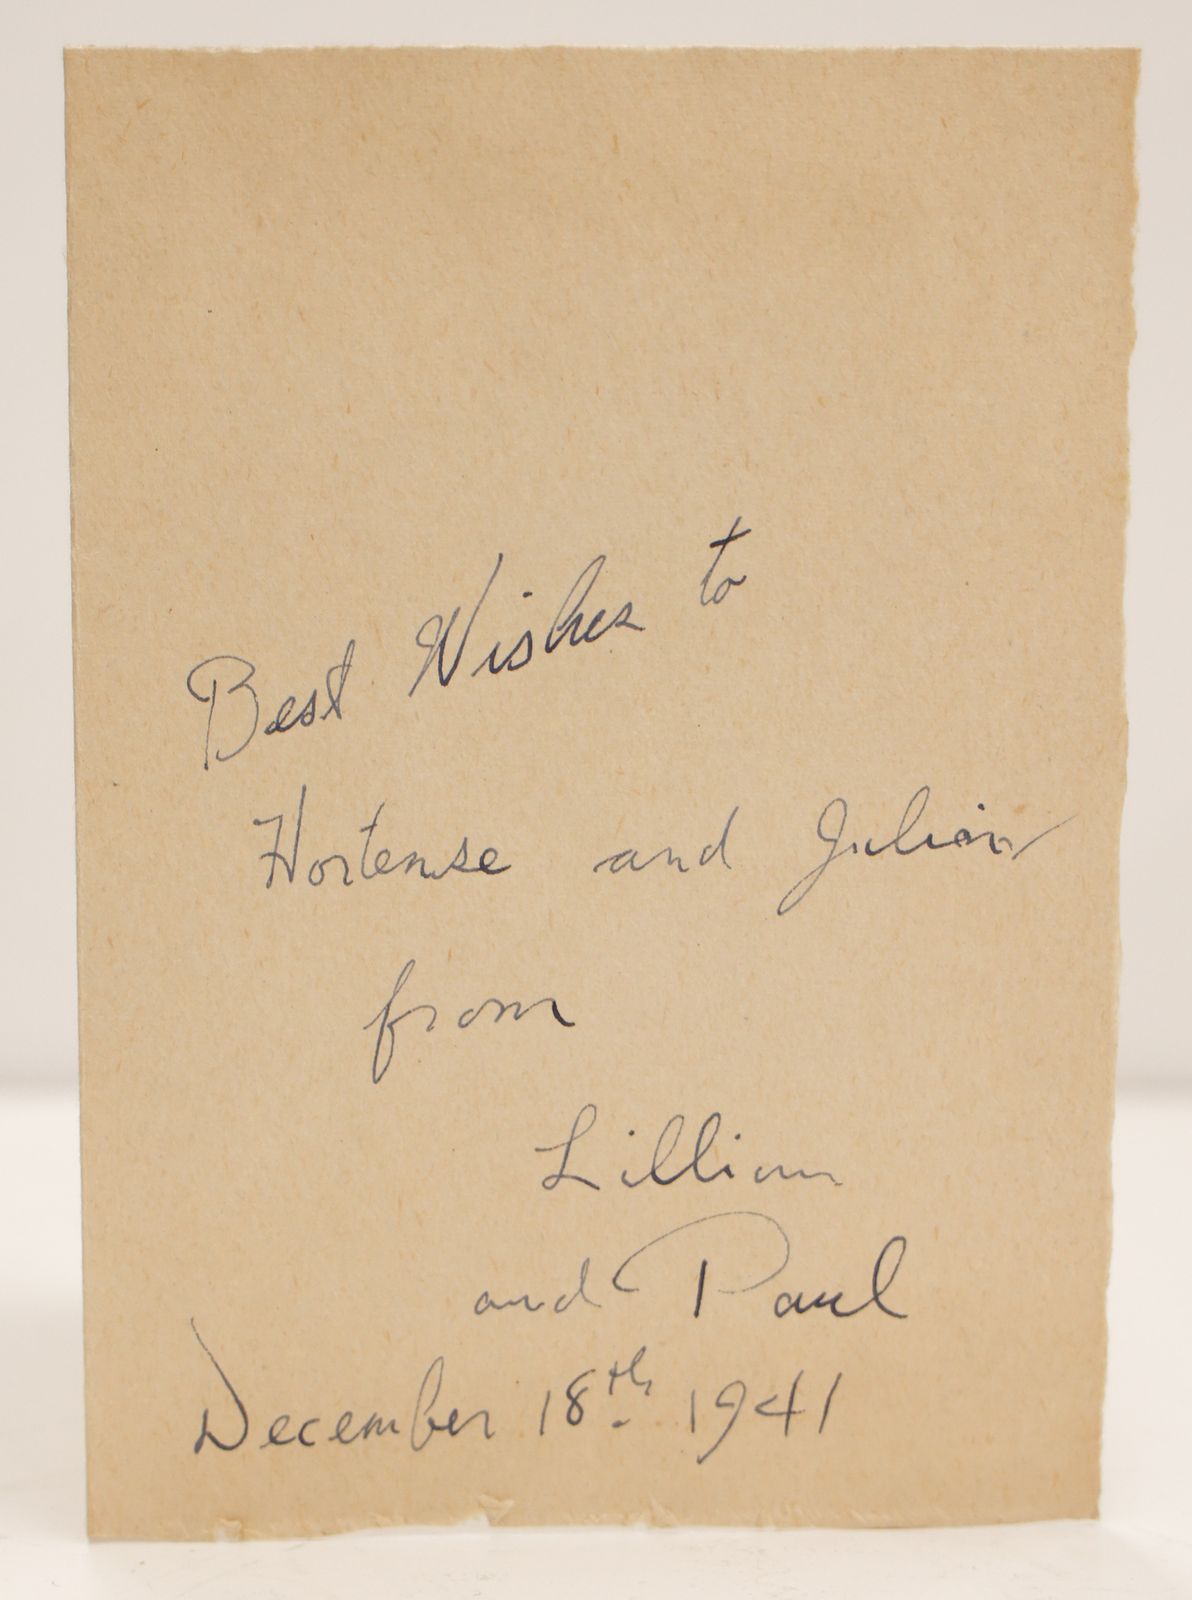 Best Wishes to
Hortense and Julian
from
Lillian
and Paul
December 18th 1941